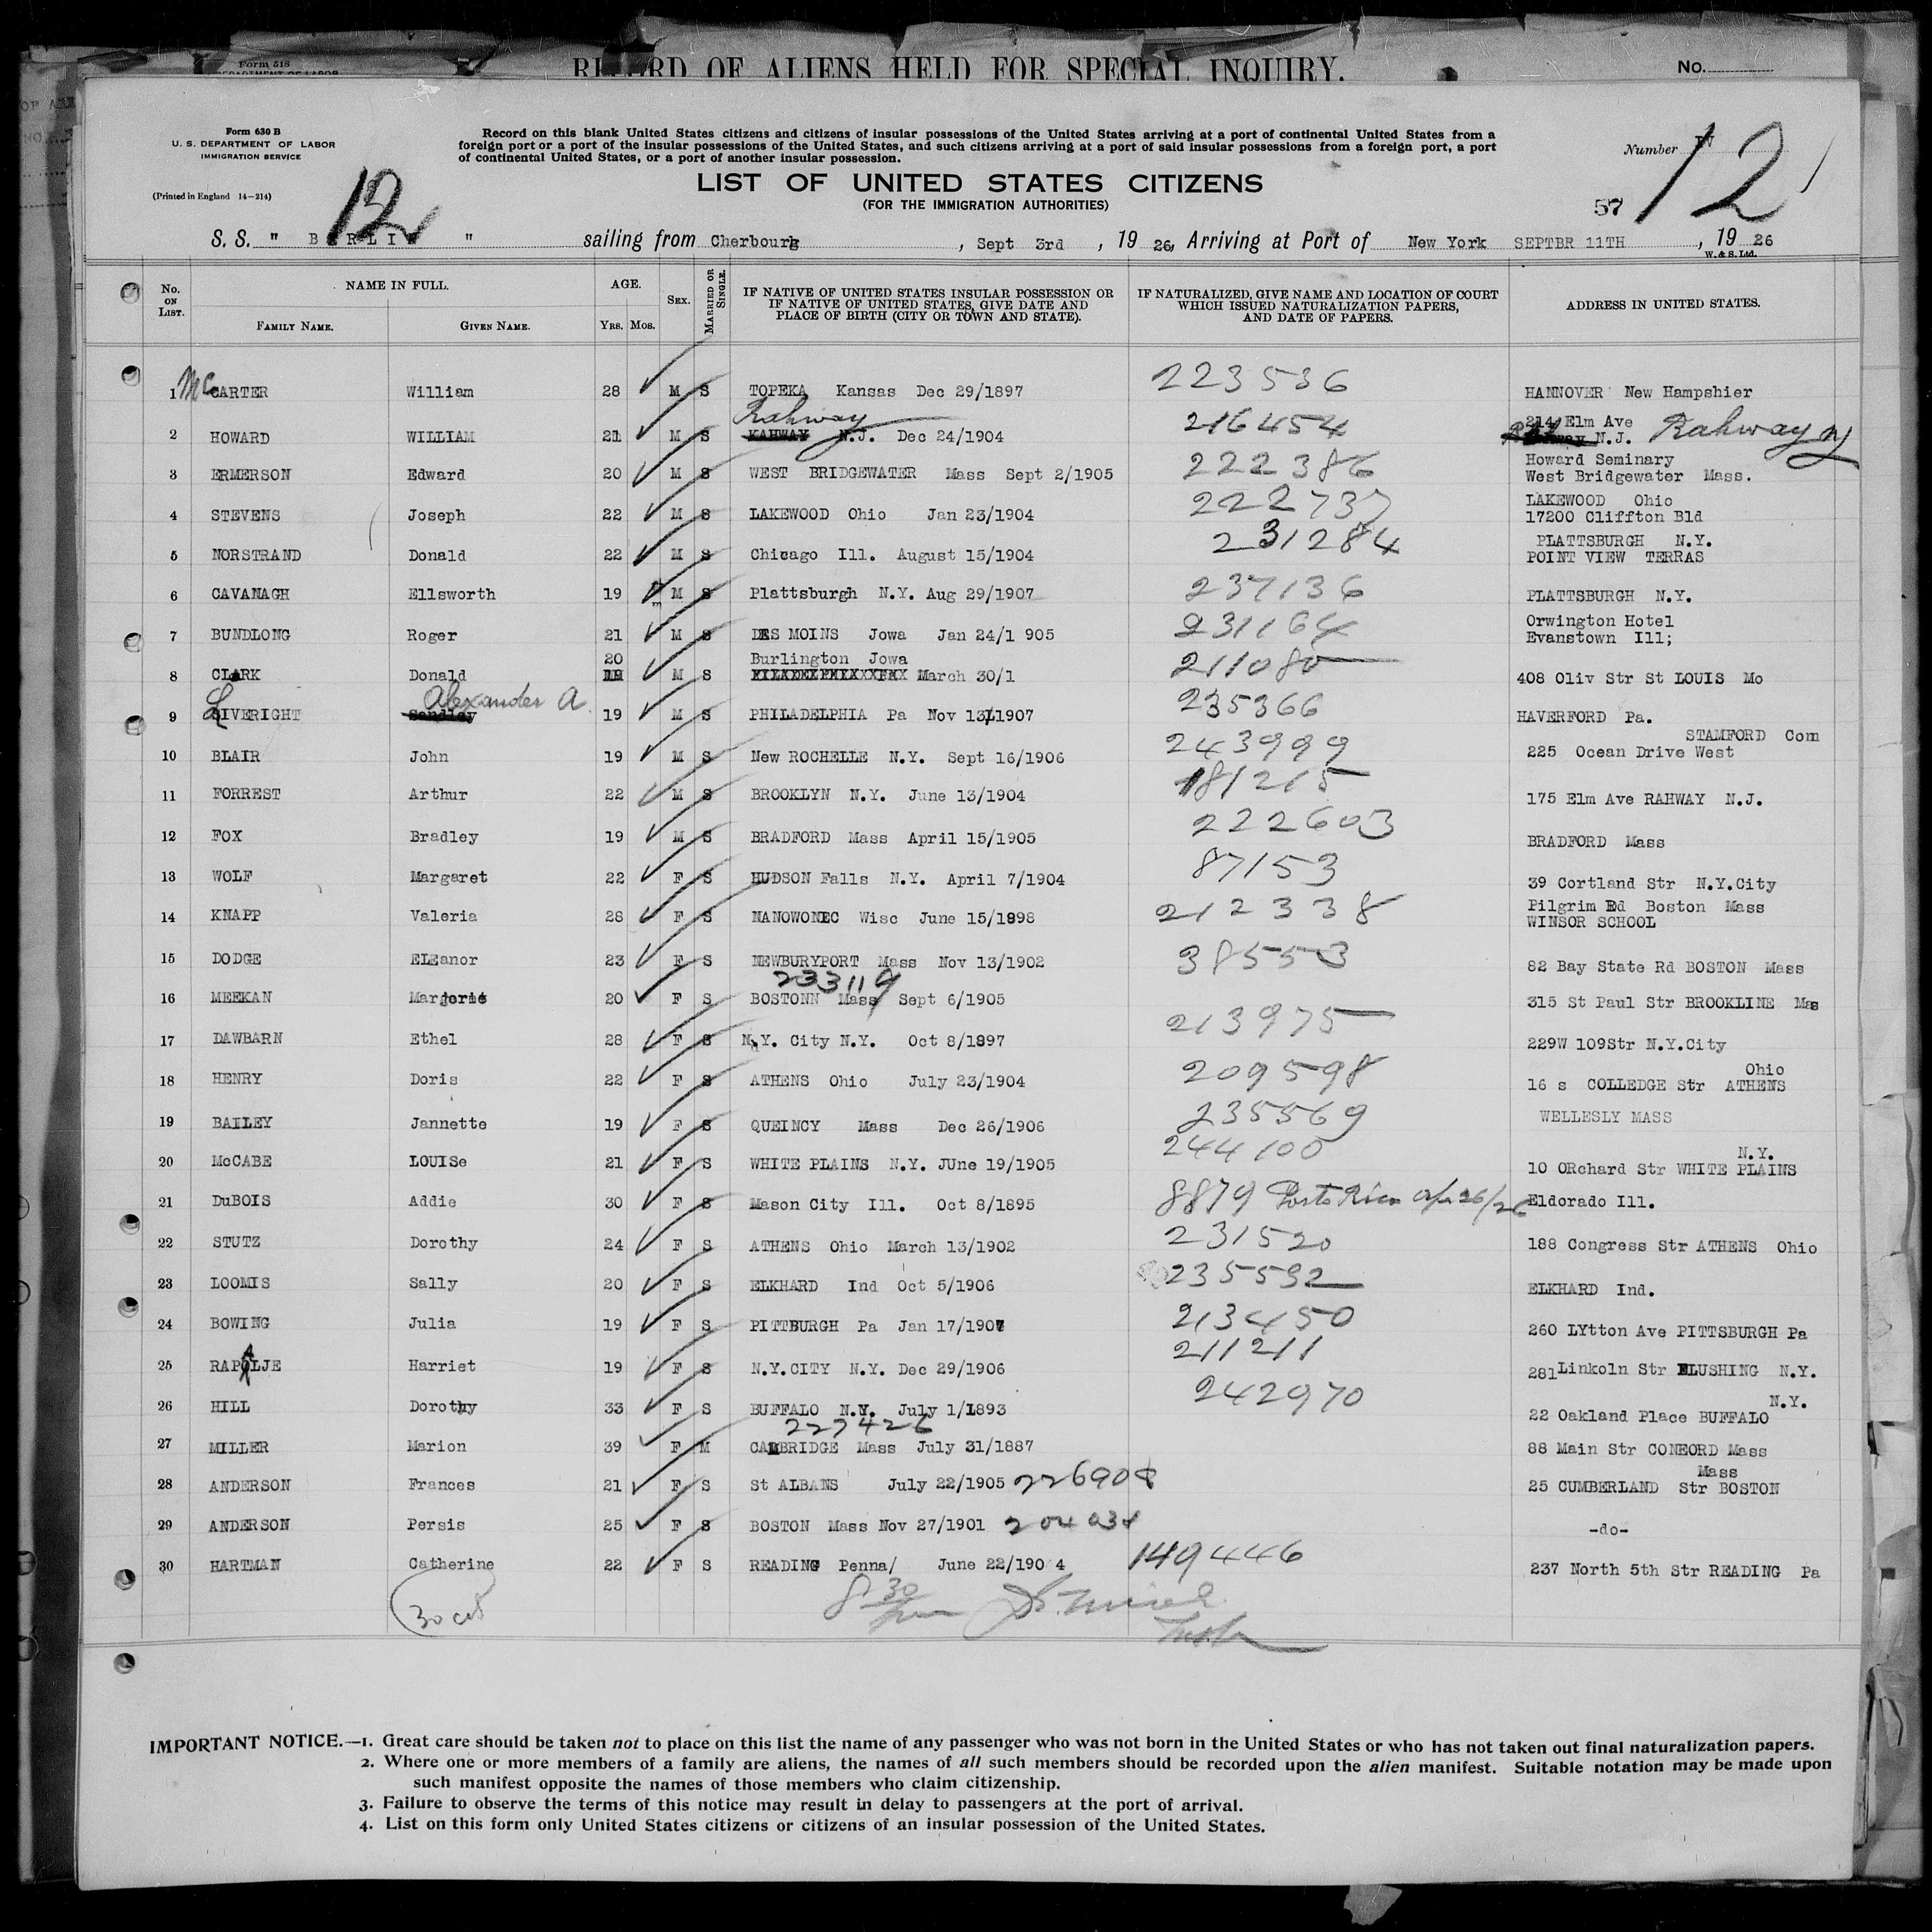 Form 518
DEPARTMENT OF LABOR
RECORD OF ALIENS HELD FOR SPECIAL INQUIRY.
No.
Form 630 B
U. S. DEPARTMENT OF LABOR
IMMIGRATION SERVICE
(Printed in England 14—214)
12
Record on this blank United States citizens and citizens of insular possessions of the United States arriving at a port of continental United States from a
foreign port or a port of the insular possessions of the United States, and such citizens arriving at a port of said insular possessions from a foreign port, a port
of continental United States, or a port of another insular possession.
LIST OF UNITED STATES CITIZENS
(FOR THE IMMIGRATION AUTHORITIES)
Number 12
57
S. S. " BERLIN " sailing from Cherbourg, Sept 3rd, 1926, Arriving at Port of New York SEPTBR 11TH, 1926
W. & S. Ltd.
No. ON LIST. NAME IN FULL. FAMILY NAME. GIVEN NAME. AGE. YRS. MOS. SEX. MARRIED OR SINGLE. IF NATIVE OF UNITED STATES INSULAR POSSESSION OR IF NATIVE OF UNITED STATES, GIVE DATE AND PLACE OF BIRTH (CITY OR TOWN AND STATE). IF NATURALIZED, GIVE NAME AND LOCATION OF COURT WHICH ISSUED NATURALIZATION PAPERS, AND DATE OF PAPERS. ADDRESS IN UNITED STATES.
1 McCARTER William 28 M S TOPEKA Kansas Dec 29/1897 223536 HANNOVER New Hampshier
2 HOWARD WILLIAM 21 M S KAHWAY Rahway N.J. Dec 24/1904 216454 214 Elm Ave N.J. Rahway NJ
3 ERMERSON Edward 20 M S WEST BRIDGEWATER Mass Sept 2/1905 222386 Howard Seminary West Bridgewater Mass.
4 STEVENS Joseph 22 M S LAKEWOOD Ohio Jan 23/1904 222737 LAKEWOOD Ohio 17200 Cliffton Bld
5 NORSTRAND Donald 22 M S Chicago Ill. August 15/1904 231284 PLATTSBURGH N.Y. POINT VIEW TERRAS
6 CAVANAGH Ellsworth 19 M S Plattsburgh N.Y. Aug 29/1907 237136 PLATTSBURGH N.Y.
7 BUNDLONG Roger 21 M S DES MOINS Jowa Jan 24/1 905 231164 Orwington Hotel Evanstown Ill;
8 CLARK Donald 20 M S Burlington Jowa March 30/1 211080 408 Oliv Str St LOUIS Mo
9 LIVERIGHT Sendley Alexander A. 19 M S PHILADELPHIA Pa Nov 13/1907 235366 HAVERFORD Pa.
10 BLAIR John 19 M S New ROCHELLE N.Y. Sept 16/1906 243999 STAMFORD Com 225 Ocean Drive West
11 FORREST Arthur 22 M S BROOKLYN N.Y. June 13/1904 181215 175 Elm Ave RAHWAY N.J.
12 FOX Bradley 19 M S BRADFORD Mass April 15/1905 222603 BRADFORD Mass
13 WOLF Margaret 22 F S HUDSON Falls N.Y. April 7/1904 87153 39 Cortland Str N.Y.City
14 KNAPP Valeria 28 F S NANOWONEC Wisc June 15/1898 212338 Pilgrim Rd Boston Mass WINSOR SCHOOL
15 DODGE ELEanor 23 F S NEWBURYPORT Mass Nov 13/1902 38553 82 Bay State Rd BOSTON Mass
16 MEEKAN Marjorie 20 F S BOSTONN Mass Sept 6/1905 233119 315 St Paul Str BROOKLINE Mas
17 DAWBARN Ethel 28 F S N.Y. City N.Y. Oct 8/1897 213975 229W 109Str N.Y.City
18 HENRY Doris 22 F S ATHENS Ohio July 23/1904 209598 16 s COLLEDGE Str ATHENS Ohio
19 BAILEY Jannette 19 F S QUEINCY Mass Dec 26/1906 235569 WELLESLY MASS
20 McCABE LOUISe 21 F S WHITE PLAINS N.Y. JUne 19/1905 244100 10 ORchard Str WHITE PLAINS N.Y.
21 DuBOIS Addie 30 F S Mason City Ill. Oct 8/1895 8879 Porto Rico Apr 26/26 Eldorado Ill.
22 STUTZ Dorothy 24 F S ATHENS Ohio March 13/1902 231520 188 Congress Str ATHENS Ohio
23 LOOMIS Sally 20 F S ELKHARD Ind Oct 5/1906 235592 ELKHARD Ind.
24 BOWING Julia 19 F S PITTBURGH Pa Jan 17/1907 213450 260 LYtton Ave PITTSBURGH Pa
25 RAPALJE Harriet 19 F S N.Y.CITY N.Y. Dec 29/1906 211211 281 Linkoln Str FLUSHING N.Y.
26 HILL Dorothy 33 F S BUFFALO N.Y. July 1/1893 242970 22 Oakland Place BUFFALO N.Y.
27 MILLER Marion 39 F M CAMBRIDGE Mass July 31/1887 227426 88 Main Str CONEORD Mass
28 ANDERSON Frances 21 F S St ALBANS July 22/1905 226908 25 CUMBERLAND Str BOSTON Mass
29 ANDERSON Persis 25 F S BOSTON Mass Nov 27/1901 204038 -do-
30 HARTMAN Catherine 22 F S READING Penna/ June 22/190 4 149446 237 North 5th Str READING Pa
IMPORTANT NOTICE.—1. Great care should be taken not to place on this list the name of any passenger who was not born in the United States or who has not taken out final naturalization papers.
2. Where one or more members of a family are aliens, the names of all such members should be recorded upon the alien manifest. Suitable notation may be made upon
such manifest opposite the names of those members who claim citizenship.
3. Failure to observe the terms of this notice may result in delay to passengers at the port of arrival.
4. List on this form only United States citizens or citizens of an insular possession of the United States.